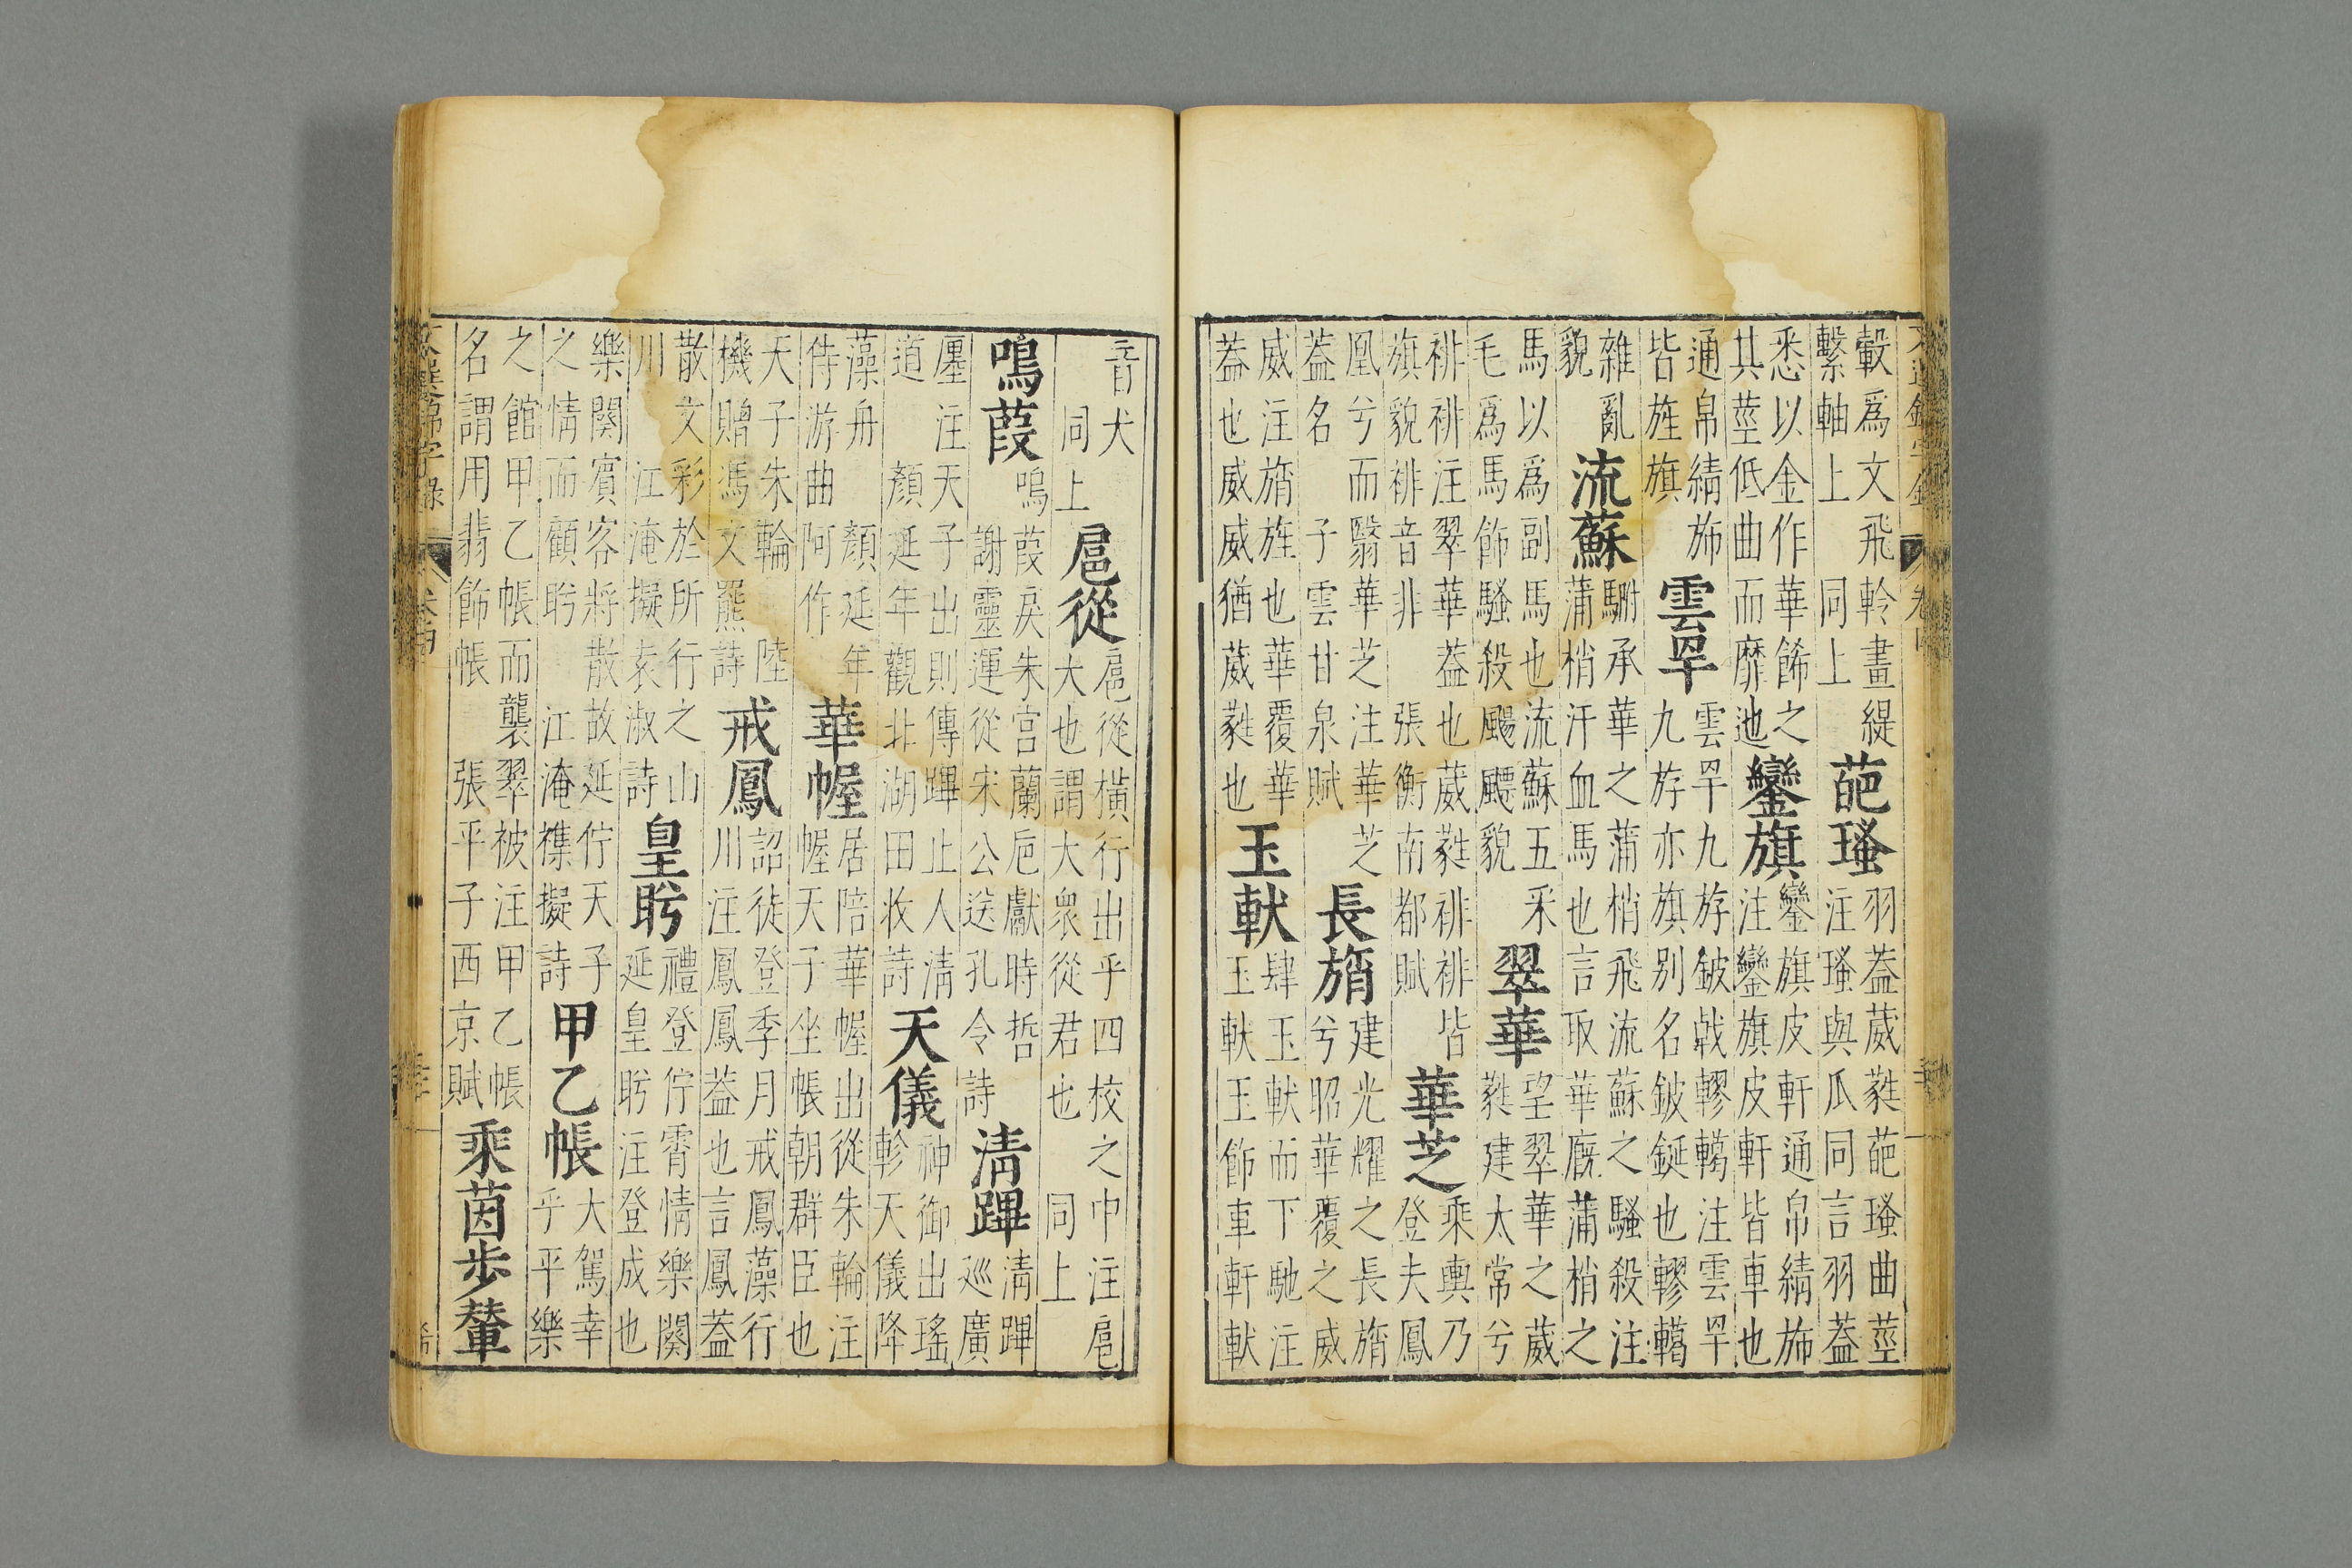 轂為文飛軨畫緹
繫軸上 同上
葩瑵
羽蓋葳蕤葩瑵曲莖
注瑵與瓜同言羽蓋
悉以金作華餙之
其莖低曲而靡迆
鑾旗
鑾旗皮軒通帛綪斾
注鑾旗皮軒皆車也
通帛綪斾
皆旌旗
雲罕
雲罕九斿鈹戟轇轕注雲罕
九斿亦旗別名鈹鋋也轇轕
雜亂
貌
流蘇
駙承華之蒲梢飛流蘇之騷殺注
蒲梢汗血馬也言取華廐蒲梢之
馬以為副馬也流蘇五釆
毛為馬飾騷殺颺飃貌
翠華
望翠華之葳
蕤建太常兮
裶裶注翠華蓋也葳蕤裶裶皆
旗貌裶音非 張衡南都賦
華芝
乘輿乃
登夫鳳
凰兮而翳華芝注華芝
蓋名 子雲甘泉賦
長旓
建光耀之長旓
兮昭華覆之威
威注旓旌也華覆華
蓋也威威猶葳蕤也
玉軑
肆玉軑而下馳注
玉軑玉飾車軒軑
音犬
同上
扈從
扈從橫行出乎四校之中注扈
大也謂大衆從君也 同上
鳴葭
鳴葭戾朱宮蘭巵獻時哲
謝靈運從宋公送孔令詩
清蹕
清蹕
巡廣
廛注天子出則傳蹕止人清
道 顏延年觀北湖田收詩
天儀
神御出瑤
軫天儀降
藻舟 顏延年
侍游曲阿作
華幄
居陪華幄出從朱輪注
幄天子坐帳朝群臣也
天子朱輪 陸
機贈馮文羆詩
戒鳳
詔徒登季月戒鳳藻行
川注鳳鳳蓋也言鳳蓋
散文彩於所行之山
川 江淹擬袁淑詩
皇眄
禮登佇霄情樂闋
延皇眄注登成也
樂闋賓客將散故延佇天子
之情而顧眄 江淹襍擬詩
甲乙帳
大駕幸
乎平樂
之館甲乙帳而襲翠被注甲乙帳
名謂用翡飾帳 張平子西京賦
乘茵步輦
文選錦字錄